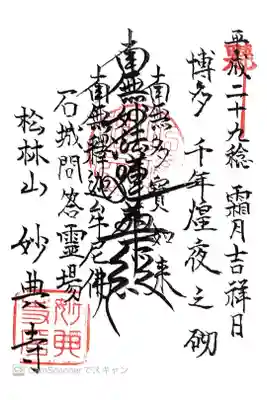 平成二十九稔 霜月吉祥日
博多 千年煌夜之砌
南無多寳如来
南無妙法蓮華経
南無釋迦牟尼佛
石城問答霊場
松林山 妙典寺
妙典寺
CamScanner でスキャン